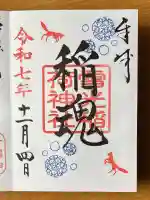 奉拝
稲魂
荷神社
令和七年
十一月四日